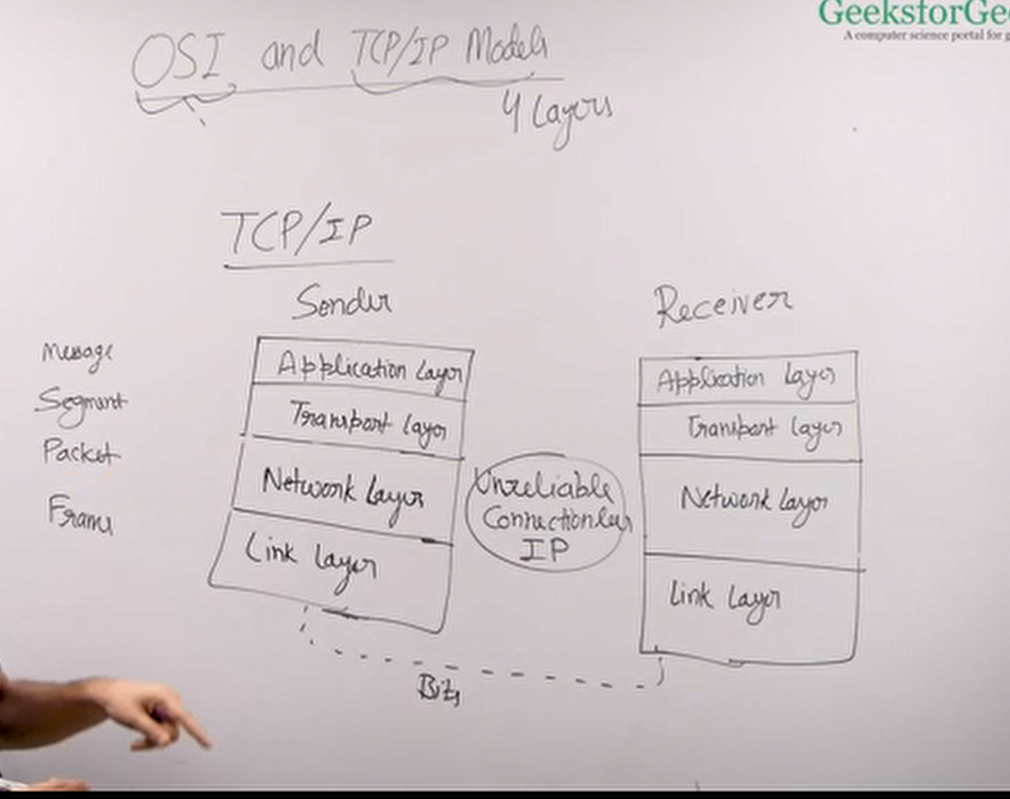 GeeksforGee
A computer science portal for g
OSI and TCP/IP Models
4 Layers
TCP/IP
Sender
Receiver
Message
Segment
Packet
Frame
Application Layer
Transport Layer
Network Layer
Link Layer
Unreliable
Connectionless
IP
Application Layer
Transport Layer
Network Layer
Link Layer
Bits